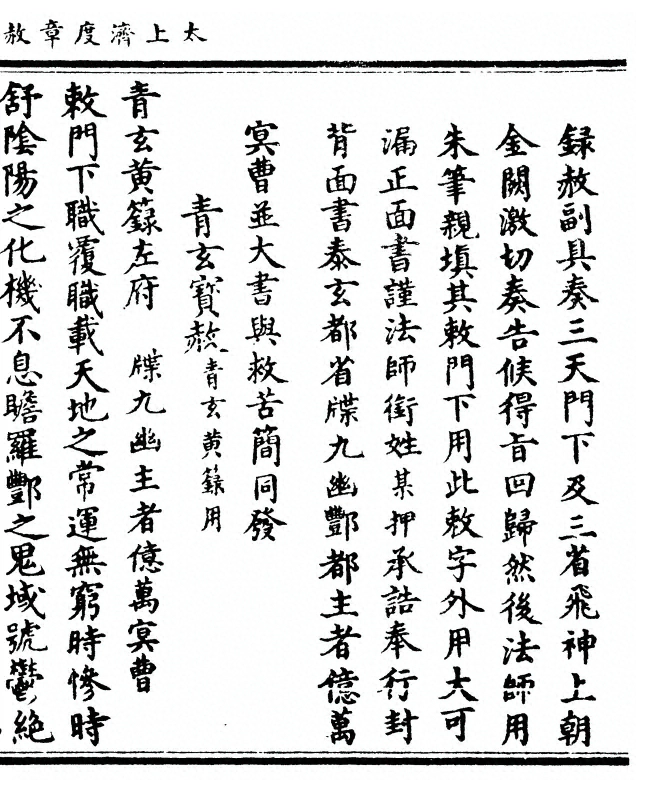 太上濟度章赦
録赦副具奏三天門下及三省飛神上朝
金闕激切奏告候得旨回歸然後法師用
朱筆親填其敕門下用此敕字外用大可
漏正面書謹法師銜姓某押承誥奉行封
背面書泰玄都省牒九幽酆都主者億萬
冥曹並大書與救苦簡同發
青玄寶赦青玄黃籙用
青玄黃籙左府 牒九幽主者億萬冥曹
敕門下職覆職載天地之常運無窮時慘時
舒陰陽之化機不息瞻羅酆之鬼域號鬱絶